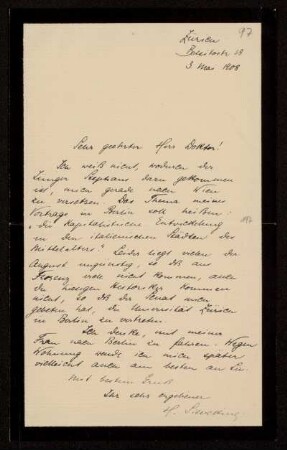 97
Zürich
3 Mai 1908
Sehr geehrter Herr Doktor!
Ich weiß nicht, wodurch der
Zünger Stephani dazu gekommen
ist, mich gerade nach Wien
zu versetzen. Das Thema meines
Vortrags in Berlin soll heißen:
"Die kapitalistische Entwicklung
in den italienischen Städten des
Mittelalters" Leider liegt schon der
August ungünstig, so daß aus
nicht kommen, auch
die hiesigen Historiker kommen
nicht, so daß der Senat mich
gebeten hat, die Universität Zürich
in Berlin zu vertreten.
Ich denke mit meiner
Frau nach Berlin zu fahren. Wegen
Wohnung wende ich mich später
vielleicht auch am besten an Sie.
Mit bestem Gruß
Ihr sehr ergebener
H. Sieveking